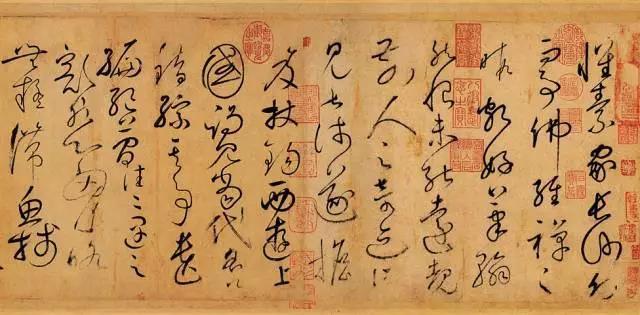 懷素家長沙幼而
事佛經禪之
暇頗好筆翰
然恨未能遠覩
前人之奇迹所
見甚淺遂擔
笈杖錫西遊上
國謁見當代名公
錯綜其事遺
編絕簡往往遇之
豁然心胸略
無疑滯魚牋